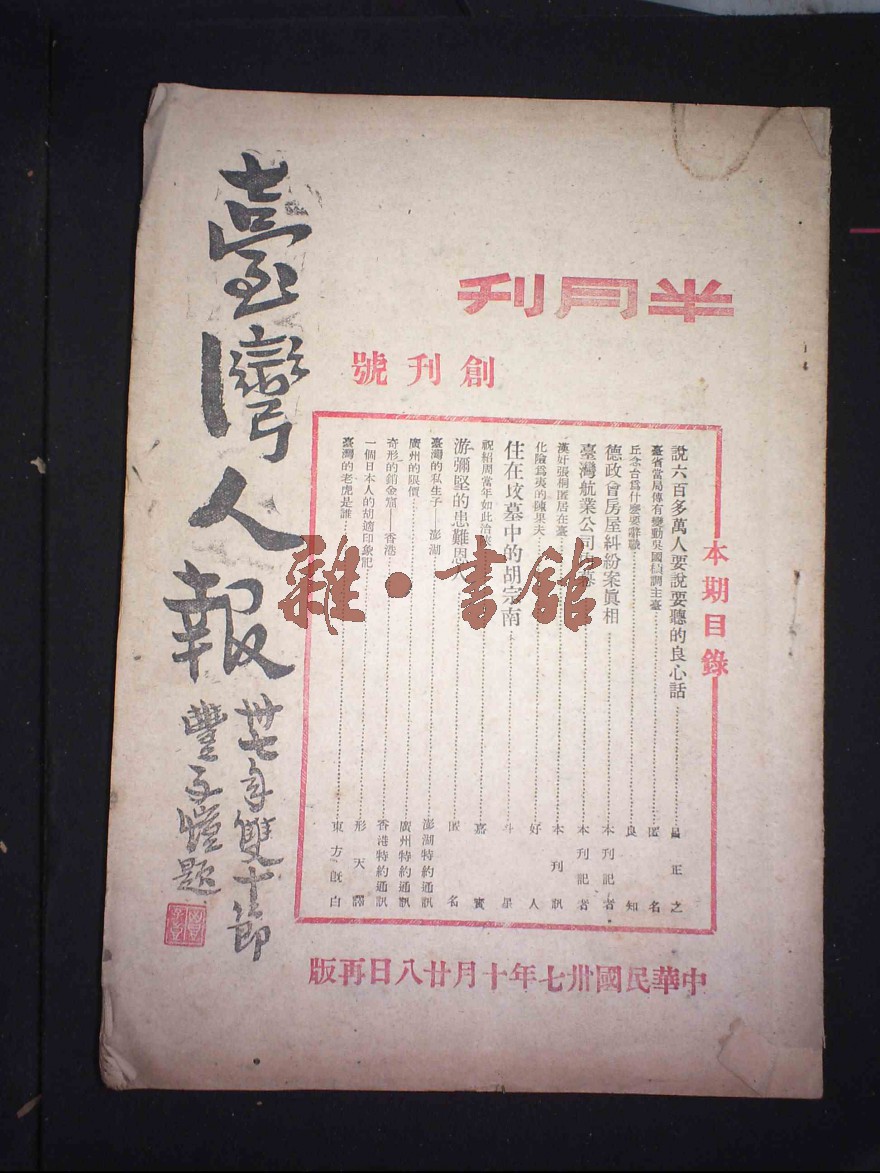 半月刊
創刊號
臺灣人報
卅七年雙十節
豐子愷題
本期目錄
說六百多萬人要說要聽的良心話 正之
臺省當局傳有變動吳國楨調主臺 匿名
丘念台爲什麼要辭職 良知
德政會房屋糾紛案眞相 本刊記者
臺灣航業公司 本刊記者
漢奸張桐匿居在臺 本刊訊
化險爲夷的陳果夫 好人
住在坟墓中的胡宗南 斗星
祝紹周當年如此治
游彌堅的患難恩人 匿名
臺灣的私生子——澎湖 澎湖特約通訊
廣州的限價 廣州特約通訊
奇形的銷金窟——香港 香港特約通訊
一個日本人的胡適印象記 形天譯
臺灣的老虎是誰 東方既白
中華民國卅七年十月廿八日再版
雜·書館